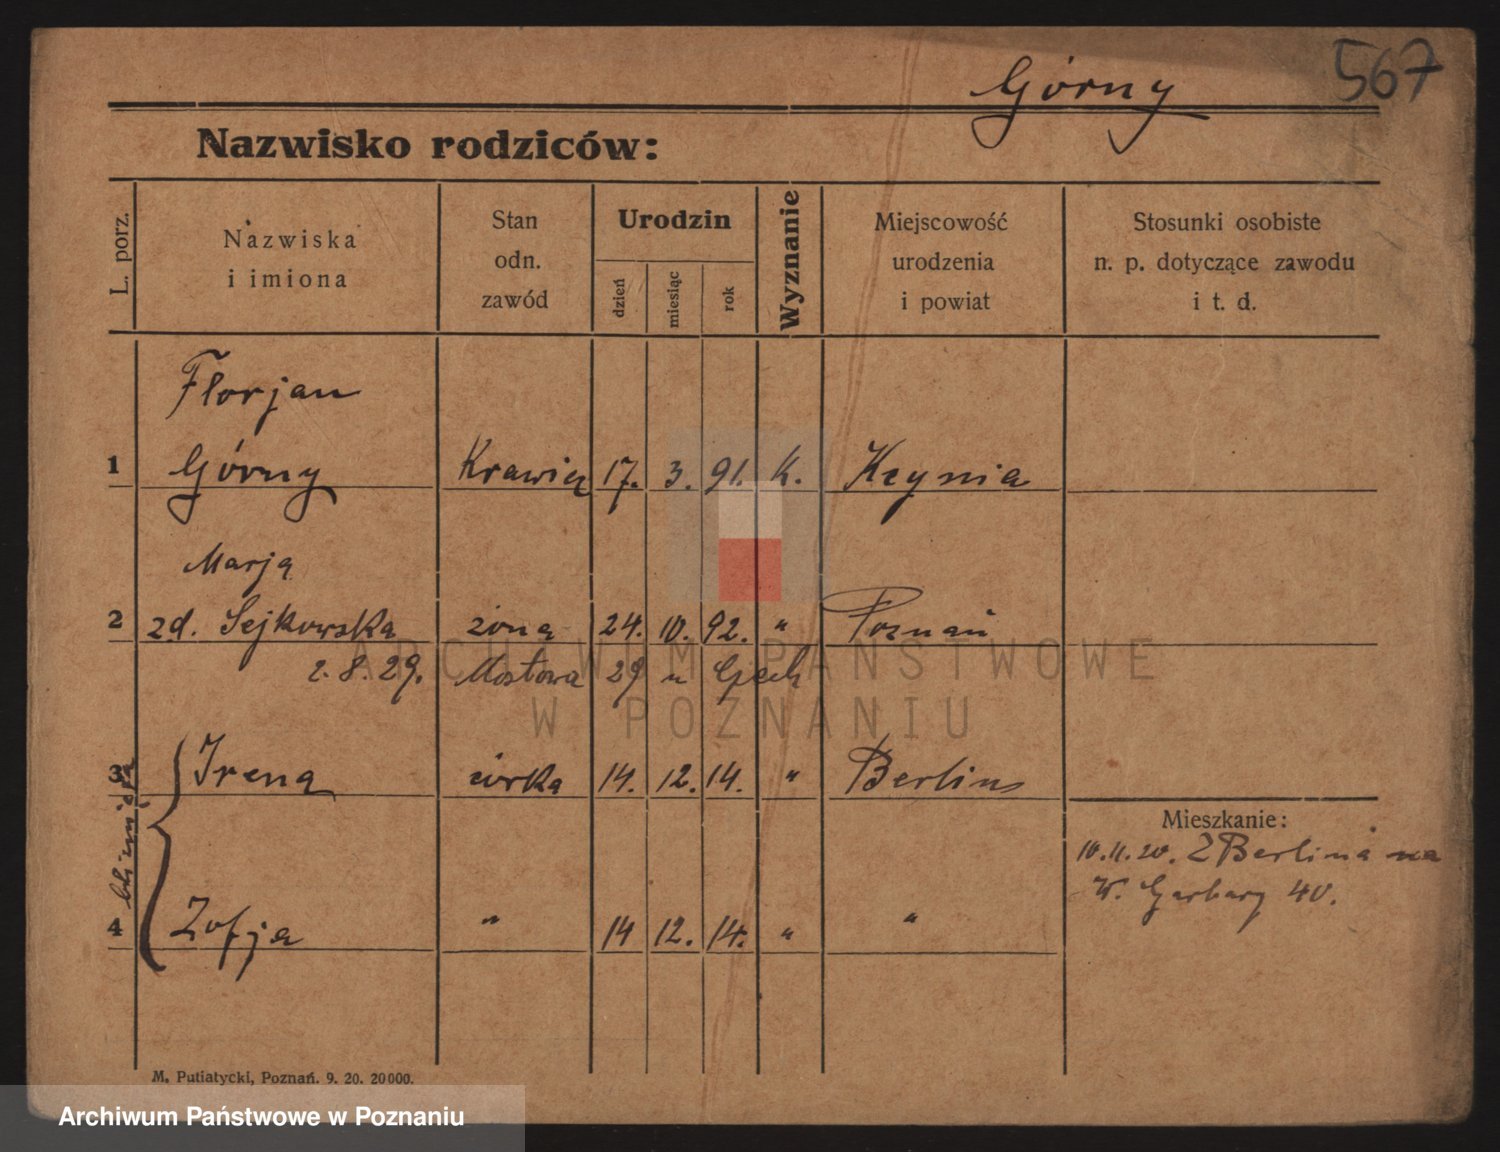 Górny 567
Nazwisko rodziców:
L. porz.
Nazwiska
i imiona
Stan
odn.
zawód
Urodzin
dzień
miesiąc
rok
Wyznanie
Miejscowość
urodzenia
i powiat
Stosunki osobiste
n. p. dotyczące zawodu
i t. d.
Florjan
1 Górny Krawiec 17. 3. 91. k. Kcynia
Marja
2 zd. Sejkowska żona 24. 10. 92. " Poznań
2.8.29. Mostowa 29 u
3 Irena córka 14. 12. 14. " Berlin
4 Zofja " 14 12. 14. " "
Mieszkanie:
10.11.20. Z Berlina na
W. Garbary 40.
M. Putiatycki, Poznań. 9. 20. 20000.
ARCHIWUM PAŃSTWOWE
W POZNANIU
Archiwum Państwowe w Poznaniu